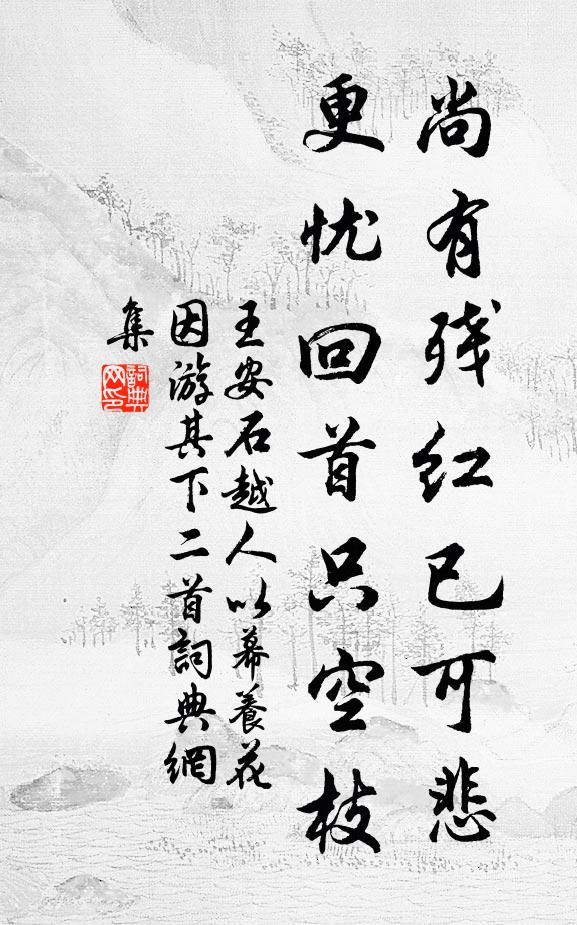 尚有残红已可悲
更忧回首只空枝
王安石越人以幕養花
因游其下二首詞典網
集
詞典
网印